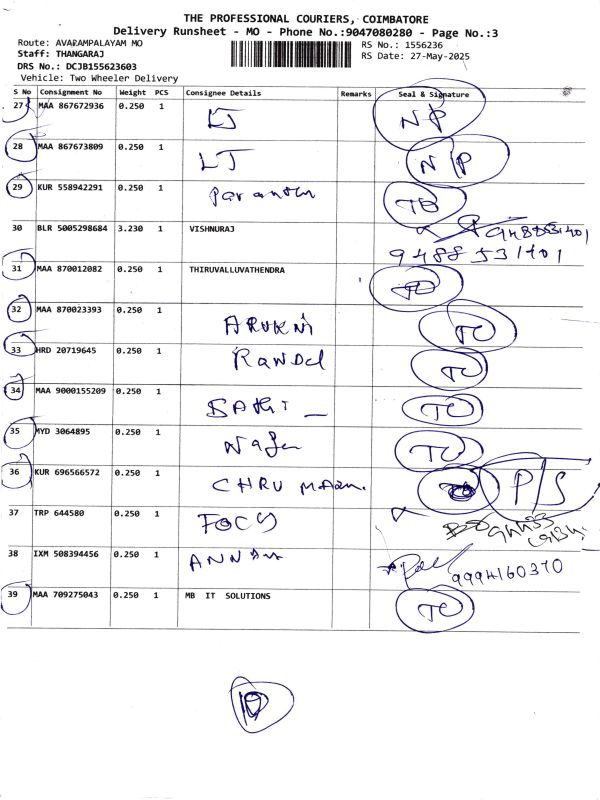 THE PROFESSIONAL COURIERS, COIMBATORE
Delivery Runsheet - MO - Phone No.:9047080280 - Page No.:3
Route: AVARAMPALAYAM MO
RS No.: 1556236
Staff: THANGARAJ
RS Date: 27-May-2025
DRS No.: DCJB155623603
Vehicle: Two Wheeler Delivery
S No Consignment No Weight PCS Consignee Details Remarks Seal & Signature
27 MAA 867672936 0.250 1 NP
28 MAA 867673809 0.250 1 LJ N/P
29 KUR 558942291 0.250 1 TB
30 BLR 5005298684 3.230 1 VISHNURAJ
9488531401
31 MAA 870012082 0.250 1 THIRUVALLUVATHENDRA TO
32 MAA 870023393 0.250 1 TO
33 HRD 20719645 0.250 1 TO
34 MAA 9000155209 0.250 1 TO
35 MYD 3064895 0.250 1 TO
36 KUR 696566572 0.250 1 P/S
37 TRP 644580 0.250 1 FOCY
38 IXM 508394456 0.250 1 9994160370
39 MAA 709275043 0.250 1 MB IT SOLUTIONS TO